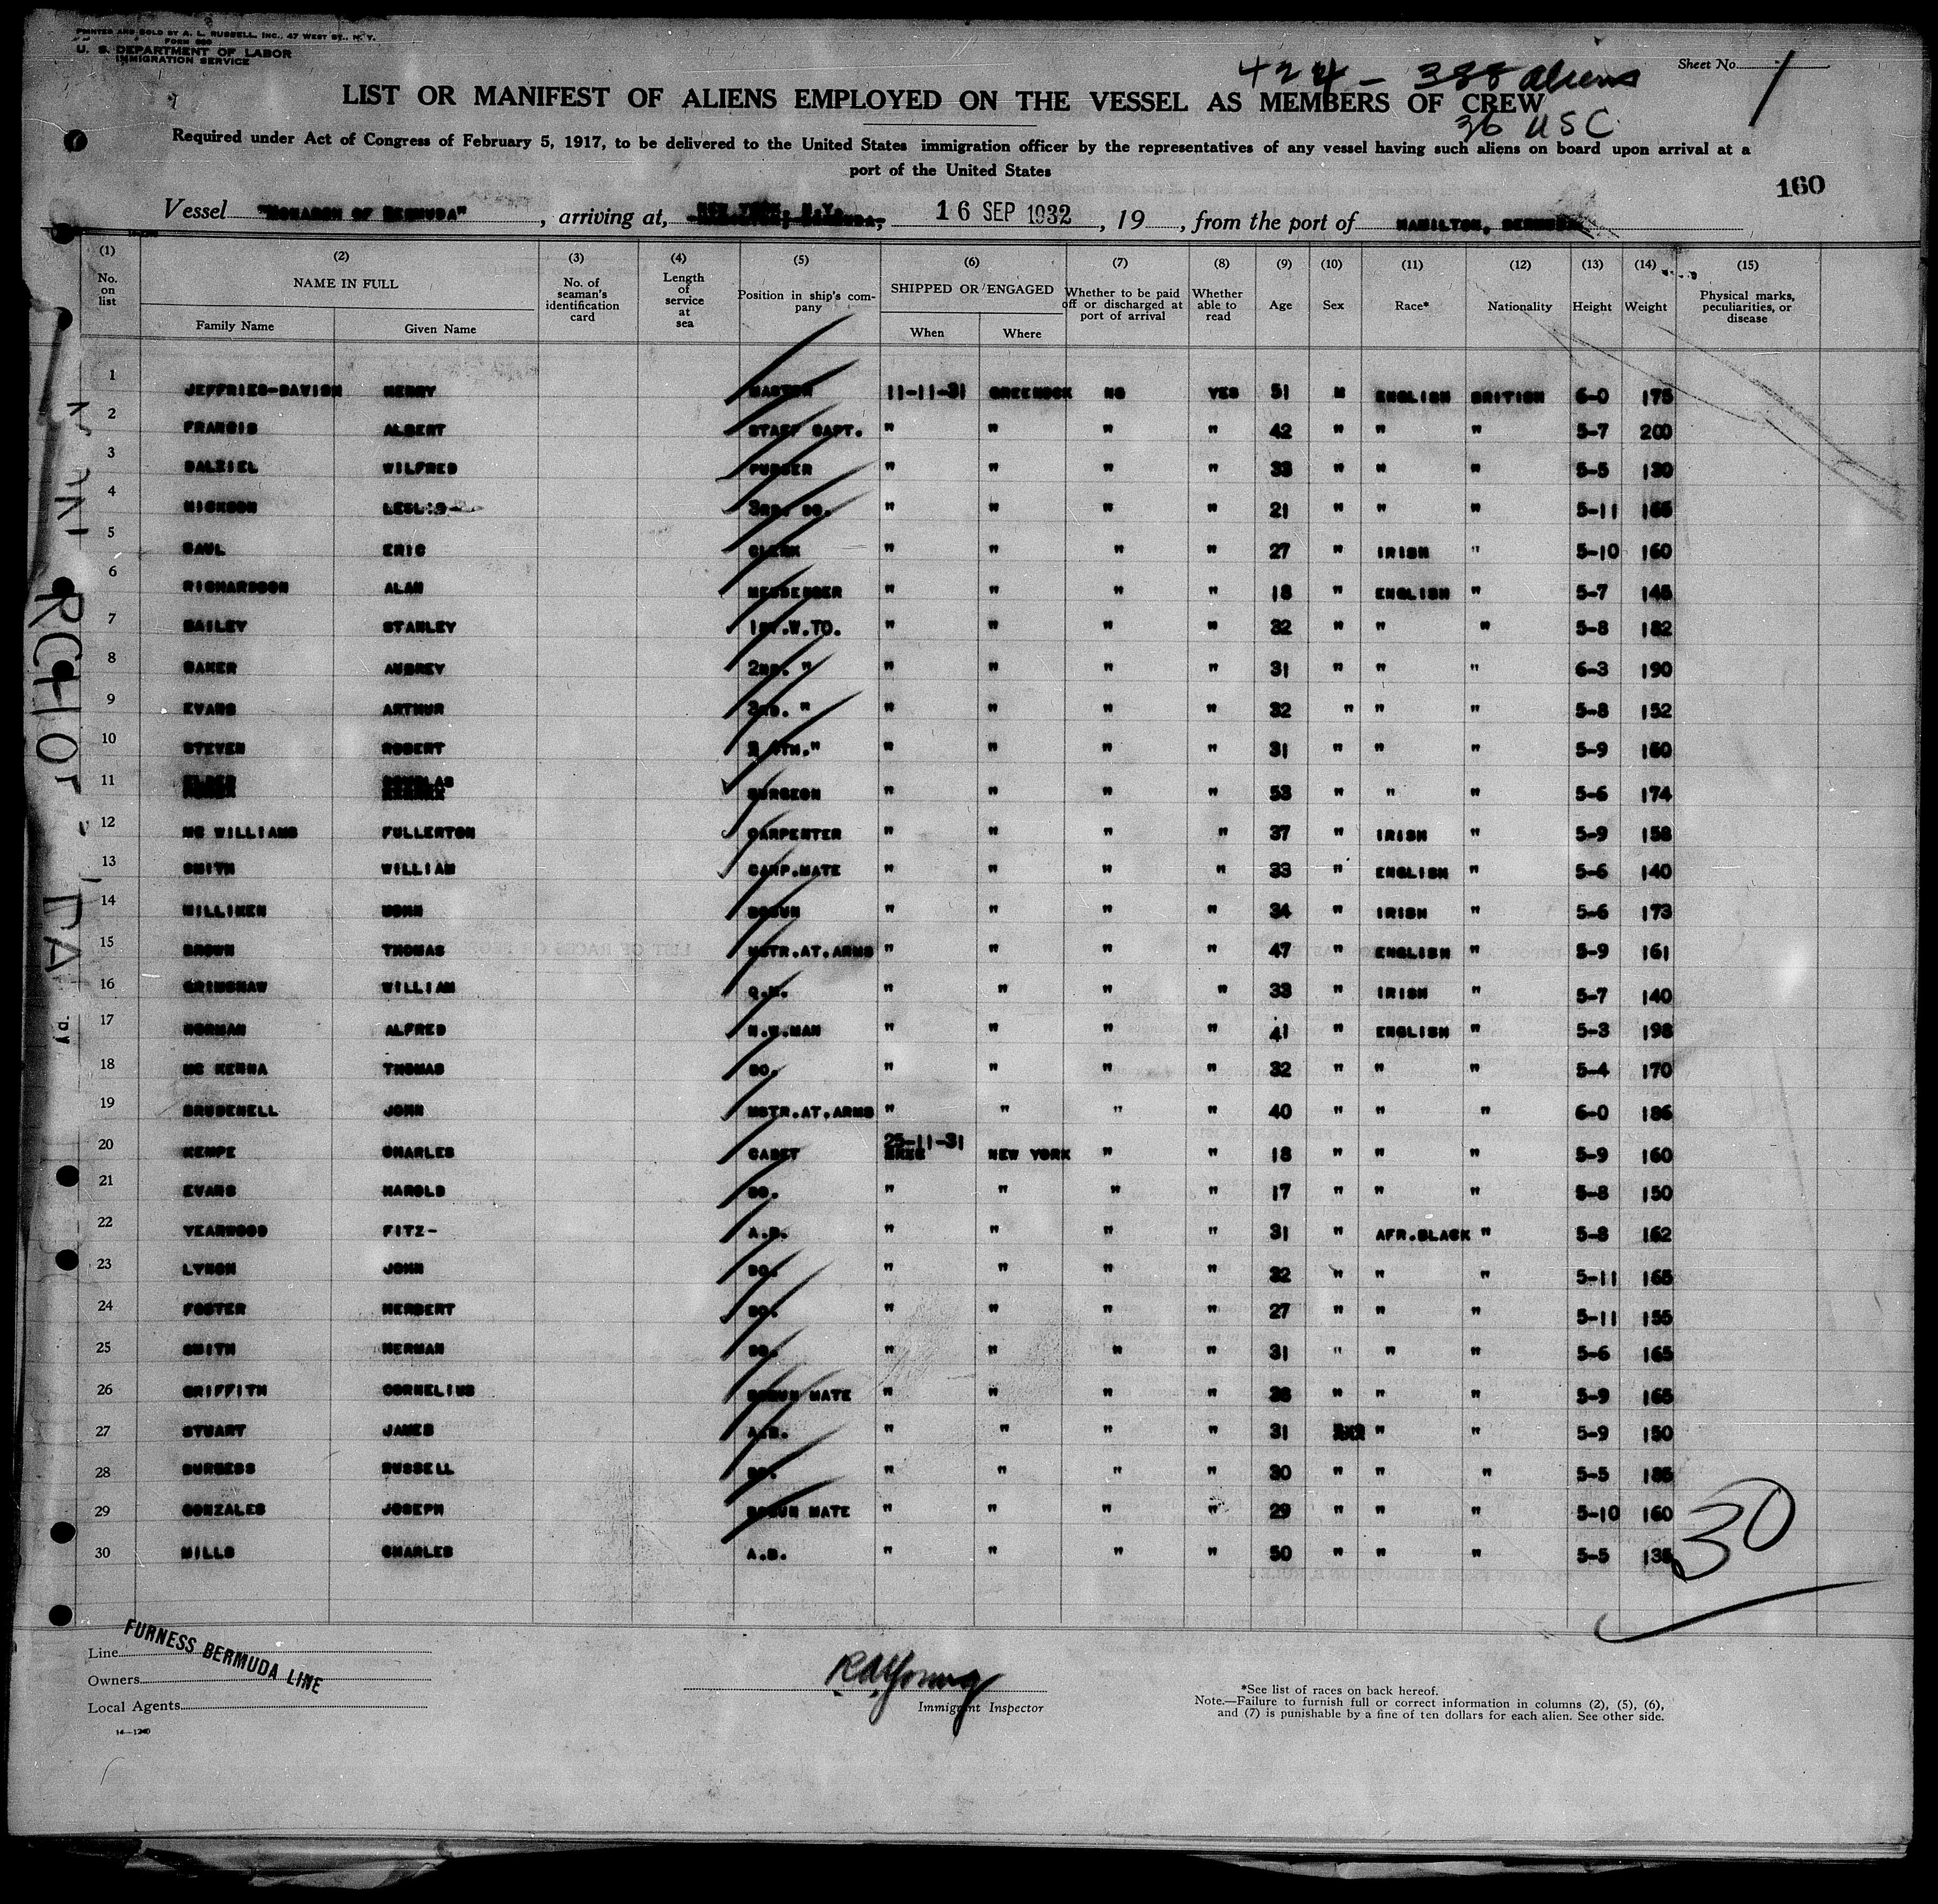 PRINTED AND SOLD BY A. L. RUSSELL, INC., 47 WEST ST., N. Y.
FORM 680
U. S. DEPARTMENT OF LABOR
IMMIGRATION SERVICE
424 - 388 aliens
36 USC
Sheet No. 1
LIST OR MANIFEST OF ALIENS EMPLOYED ON THE VESSEL AS MEMBERS OF CREW
Required under Act of Congress of February 5, 1917, to be delivered to the United States immigration officer by the representatives of any vessel having such aliens on board upon arrival at a
port of the United States
160
Vessel "MONARCH OF BERMUDA", arriving at, NEW YORK, N.Y. 16 SEP 1932, 19, from the port of HAMILTON, BERMUDA
(1) (2) (3) (4) (5) (6) (7) (8) (9) (10) (11) (12) (13) (14) (15)
No. on list NAME IN FULL Family Name Given Name No. of seaman's identification card Length of service at sea Position in ship's company SHIPPED OR ENGAGED When Where Whether to be paid off or discharged at port of arrival Whether able to read Age Sex Race* Nationality Height Weight Physical marks, peculiarities, or disease
1 JEFFRIES-DAVISH HENRY MASTER 11-11-31 GREENOCK NO YES 51 M ENGLISH BRITISH 6-0 175
2 FRANCIS ALBERT STAFF CAPT. " " " " 42 " " " 5-7 200
3 DALZIEL WILFRED PURSER " " " " 33 " " " 5-5 130
4 HICKSON LESLIE 3RD. DO. " " " " 21 " " " 5-11
5 SAUL ERIC CLERK " " " " 27 " IRISH " 5-10 160
6 RICHARDSON ALAN MESSENGER " " " " 18 " ENGLISH " 5-7 145
7 BAILEY STANLEY 1ST.W.TO. " " " " 32 " " " 5-8 182
8 BAKER AUBREY 2ND. " " " " " 31 " " " 6-3 190
9 EVANS ARTHUR 3RD. " " " " " 32 " " " 5-8 152
10 STEVEN ROBERT 4TH." " " " " 31 " " " 5-9 160
11 ELDER DOUGLAS SURGEON " " " " 53 " " " 5-6 174
12 MC WILLIAMS FULLERTON CARPENTER " " " " 37 " IRISH " 5-9 158
13 SMITH WILLIAM CARP.MATE " " " " 33 " ENGLISH " 5-6 140
14 MILLIKEN JOHN BOSUN " " " " 34 " IRISH " 5-6 173
15 BROWN THOMAS MSTR.AT.ARMS " " " " 47 " ENGLISH " 5-9 161
16 GRIMSHAW WILLIAM Q.M. " " " " 33 " IRISH " 5-7 140
17 NORMAN ALFRED N.W.MAN " " " " 41 " ENGLISH " 5-3 198
18 MC KENNA THOMAS DO. " " " " 32 " " " 5-4 170
19 BRUDENELL JOHN MSTR.AT.ARMS " " " " 40 " " " 6-0 186
20 KEMPE CHARLES CADET 25-11-31 NEW YORK " " 18 " " " 5-9 160
21 EVANS HAROLD DO. " " " " 17 " " " 5-8 150
22 YEARWOOD FITZ- A.B. " " " " 31 " AFR.BLACK " 5-8 162
23 LYNCH JOHN DO. " " " " 32 " " " 5-11 165
24 FOSTER HERBERT DO. " " " " 27 " " " 5-11 155
25 SMITH HERMAN DO. " " " " 31 " " " 5-6 165
26 GRIFFITH CORNELIUS BOSUN MATE " " " " " " " 5-9 165
27 STUART JAMES A.B. " " " " 31 " " 5-9 150
28 BURGESS RUSSELL DO. " " " " 30 " " " 5-5 185
29 GONZALES JOSEPH BOSUN MATE " " " " 29 " " " 5-10 160
30 MILLS CHARLES A.B. " " " " 50 " " " 5-5 135
30
Line
Owners
Local Agents
FURNESS BERMUDA LINE
R A Young
Immigrant Inspector
*See list of races on back hereof.
Note.—Failure to furnish full or correct information in columns (2), (5), (6),
and (7) is punishable by a fine of ten dollars for each alien. See other side.
14—1240